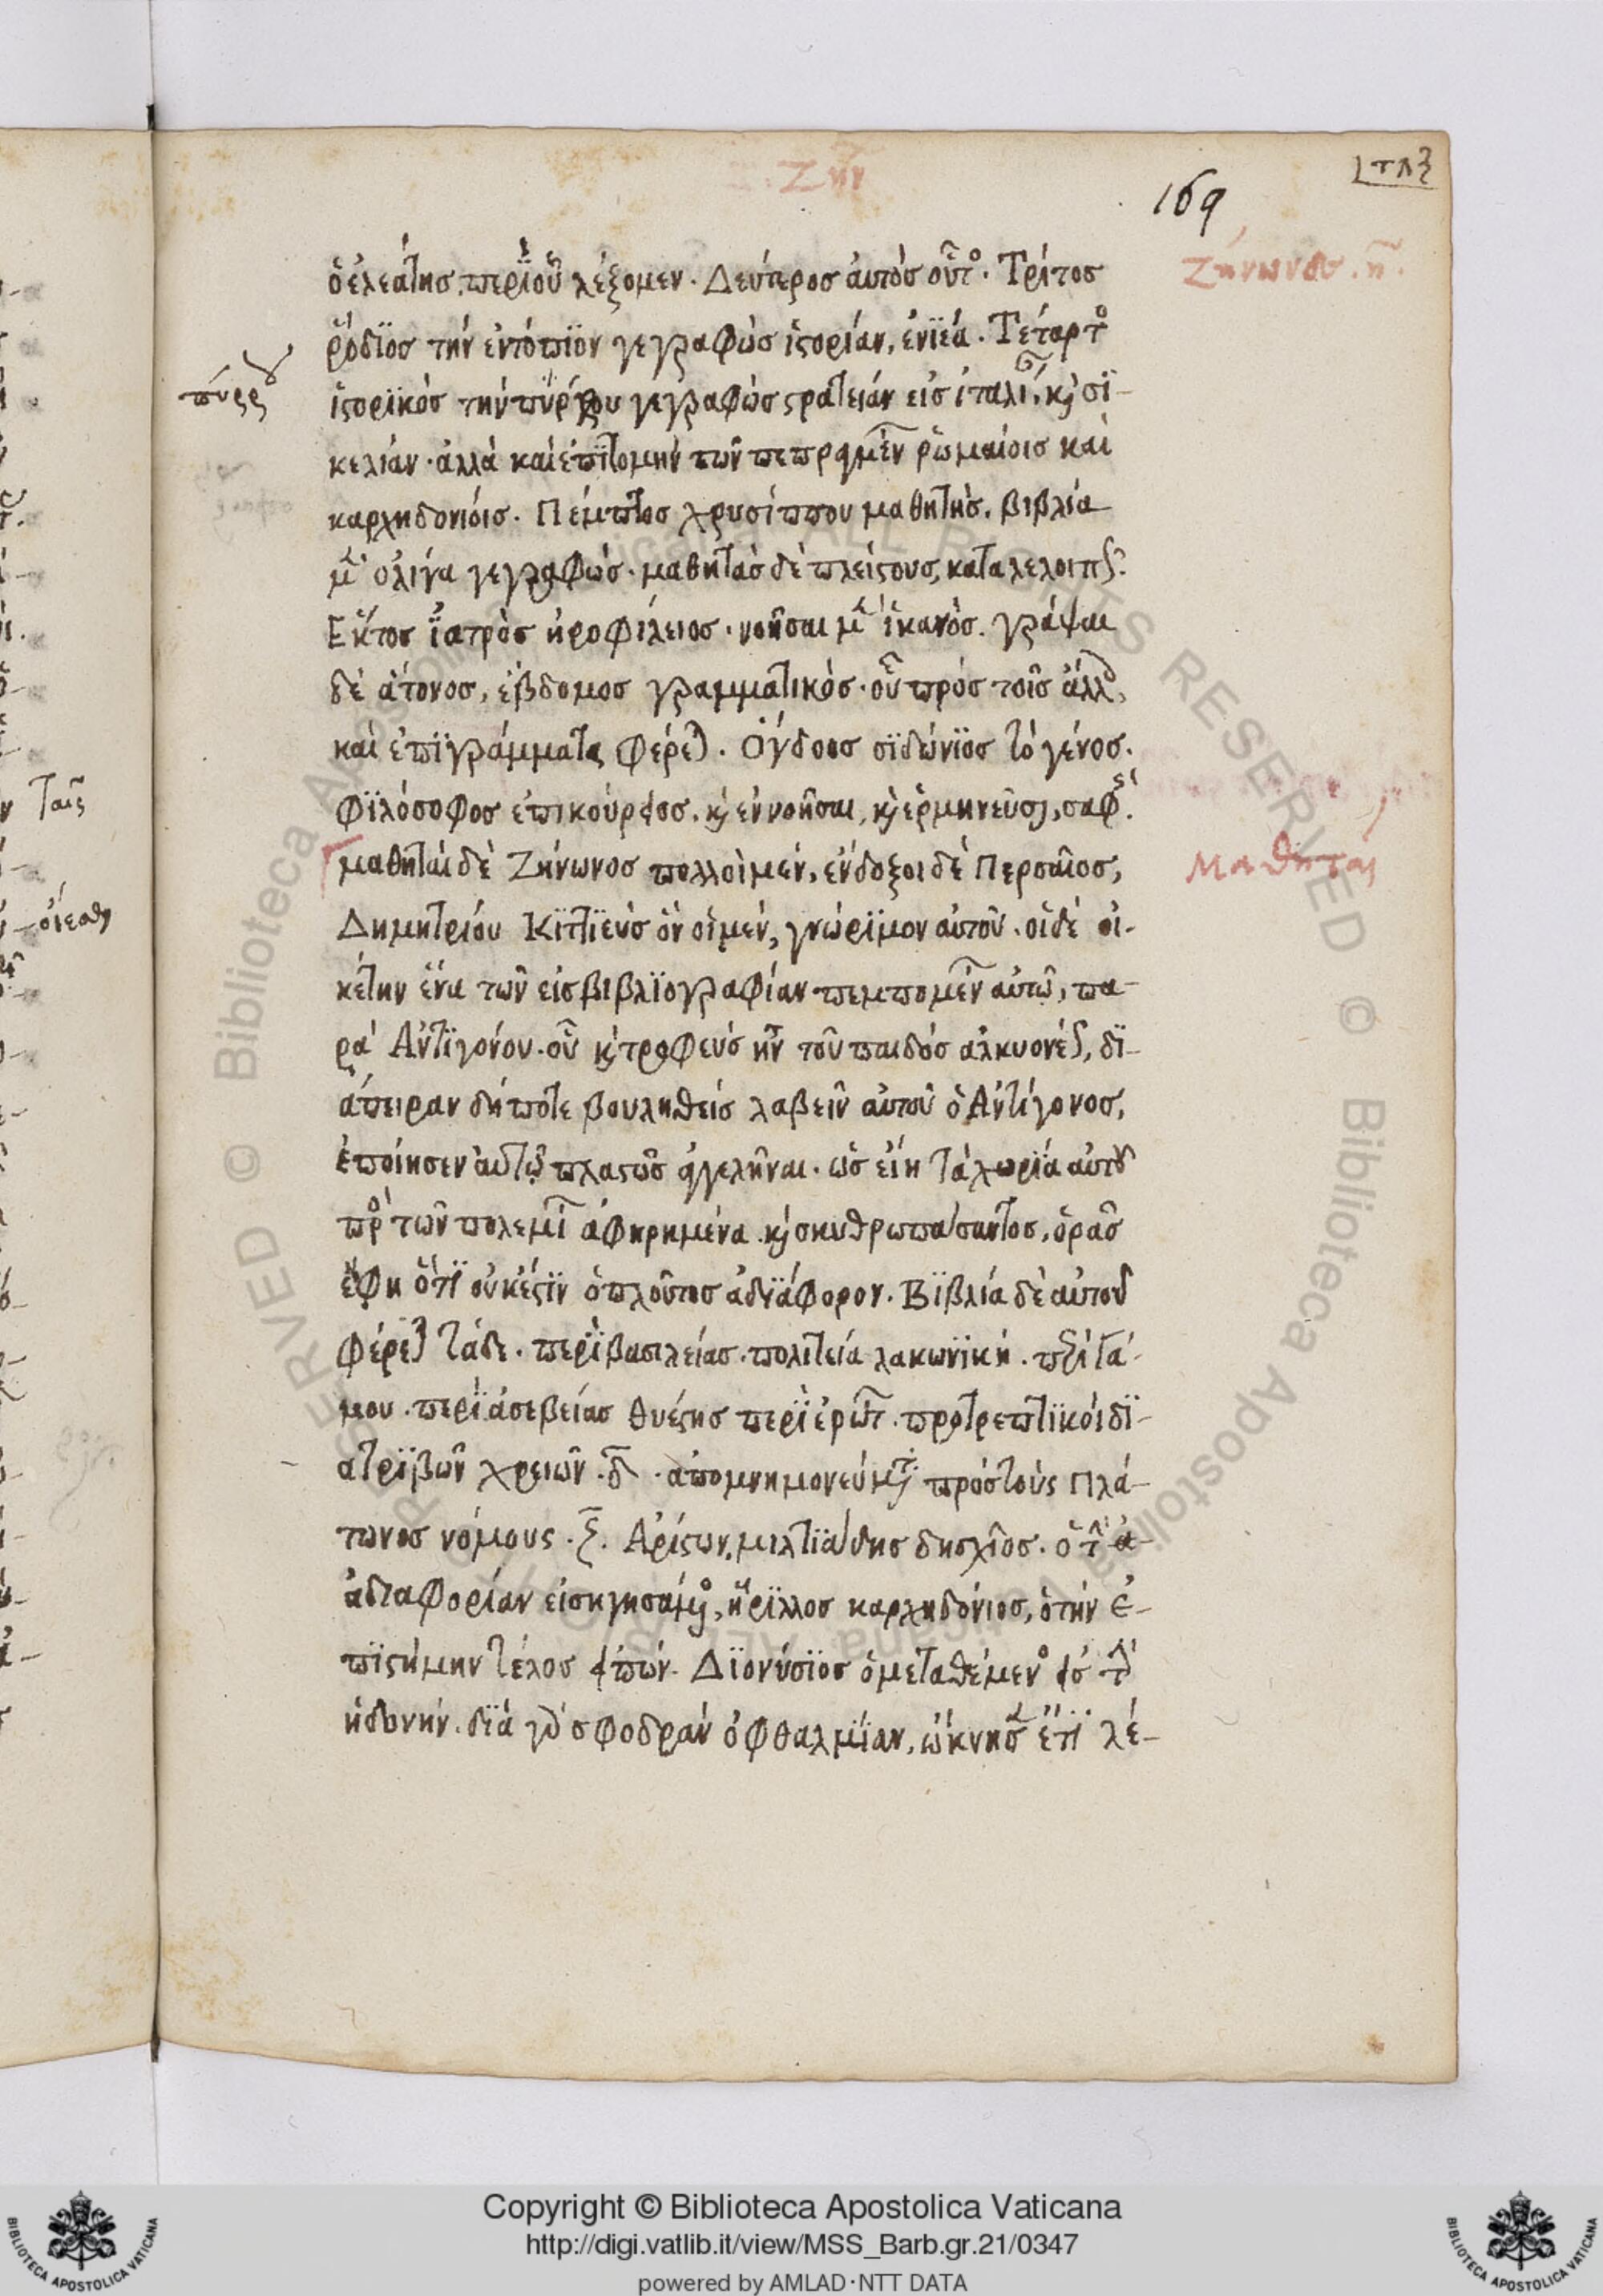 Ζήν
169
Ζήνωνες . η̄ .
ὁ ἐλεάτης, περὶ οὗ λέξομεν · Δεύτερος ἀυτὸς οὗτος · Τρίτος
ῥόδϊος τὴν ἐντόπϊον γεγραφὼς ἱστορίαν, ἑνϊέα · Τέταρτος
πύρρου
ἱστορϊκός τὴν πύρρου γεγραφὼς στρατείαν εἰς ἰταλίαν, καὶ σϊ-
κελίαν · ἀλλὰ καὶ ἐπϊτομὴν τῶν πεπραγμένων ῥωμαίοις καὶ
καρχηδονίοις · Πέμπτος χρυσίππου μαθητὴς, βιβλία
μὲν ὀλίγα γεγραφώς · μαθητὰς δὲ πλείστους, καταλελοιπώς:
Εκτος ἰατρὸς ἡροφίλειος · νοῆσαι μὲν ἱκανὸς · γράψαι
δὲ ἄτονος, ἕβδομος γραμματικός · οὗ πρὸς τοῖς ἄλλοις,
καὶ ἐπϊγράμματα φέρεται · Ὄγδοος σϊδώνϊος τὸ γένος ·
φϊλόσοφος ἐπικούρειος, καὶ ἐννοῆσαι, καὶ ἑρμηνεῦσαι, σαφής.
μαθηταὶ δὲ Ζήνωνος πολλοὶ μέν, ἔνδοξοι δὲ Περσαῖος,
Μαθηταί
Δημητρίου Κϊτϊεύς ὃν οἱ μέν, γνώρϊμον αὐτοῦ · οἱ δὲ οἰ-
κέτην ἕνα τῶν εἰς βιβλϊογραφίαν πεμπομένων αὐτῷ, πα-
ρὰ Ἀντϊγόνου · οὗ καὶ τροφεὺς ἦν τοῦ παιδός ἀλκυονέως, δϊ-
ἄπειραν δήποτε βουληθεὶς λαβεῖν αὐτοῦ ὁ Ἀντίγονος,
ἐποίησεν αὐτῷ πλαστῶς ἀγγελῆναι · ὡς εἴη τὰ χωρία αὐτοῦ
πρὸς τῶν πολεμίων ἀφηρημένα · καὶ σκυθρωπάσαντος, ὁρᾶς
ἔφη ὅτϊ οὐκ ἔστϊν ὁ πλοῦτος ἀδϊάφορον · Βϊβλία δὲ αὐτοῦ
φέρεται τάδε · περὶ βασιλείας · πολιτεία λακωνϊκή · περὶ γά-
μου · περὶ ἀσεβείας θυέστης περὶ ἐρώτων · προτρεπτϊκόι δϊ-
ατρϊβῶν χρειῶν · δ̄ · ἀπομνημονεύματα πρὸς τοὺς Πλά-
τωνος νόμους · ζ̄ . Ἀρίστων, μιλτϊάδης δησχῖος · ὁ τὴν ἀ-
ἀδιαφορίαν εἰσηγησάμενος, ἥρϊλλος καρχηδόνιος, ὁ τὴν ἐ-
πϊστήμην τέλος εἰπών · Δϊονύσϊος ὁ μεταθέμενος εἰς τὴν
ἡδονήν · δϊὰ γὰρ σφοδρὰν ὀφθαλμϊαν, ὤκνησεν ἔτϊ λέ-
ταῖς
Copyright © Biblioteca Apostolica Vaticana
http://digi.vatlib.it/view/MSS_Barb.gr.21/0347
powered by AMLAD·NTT DATA